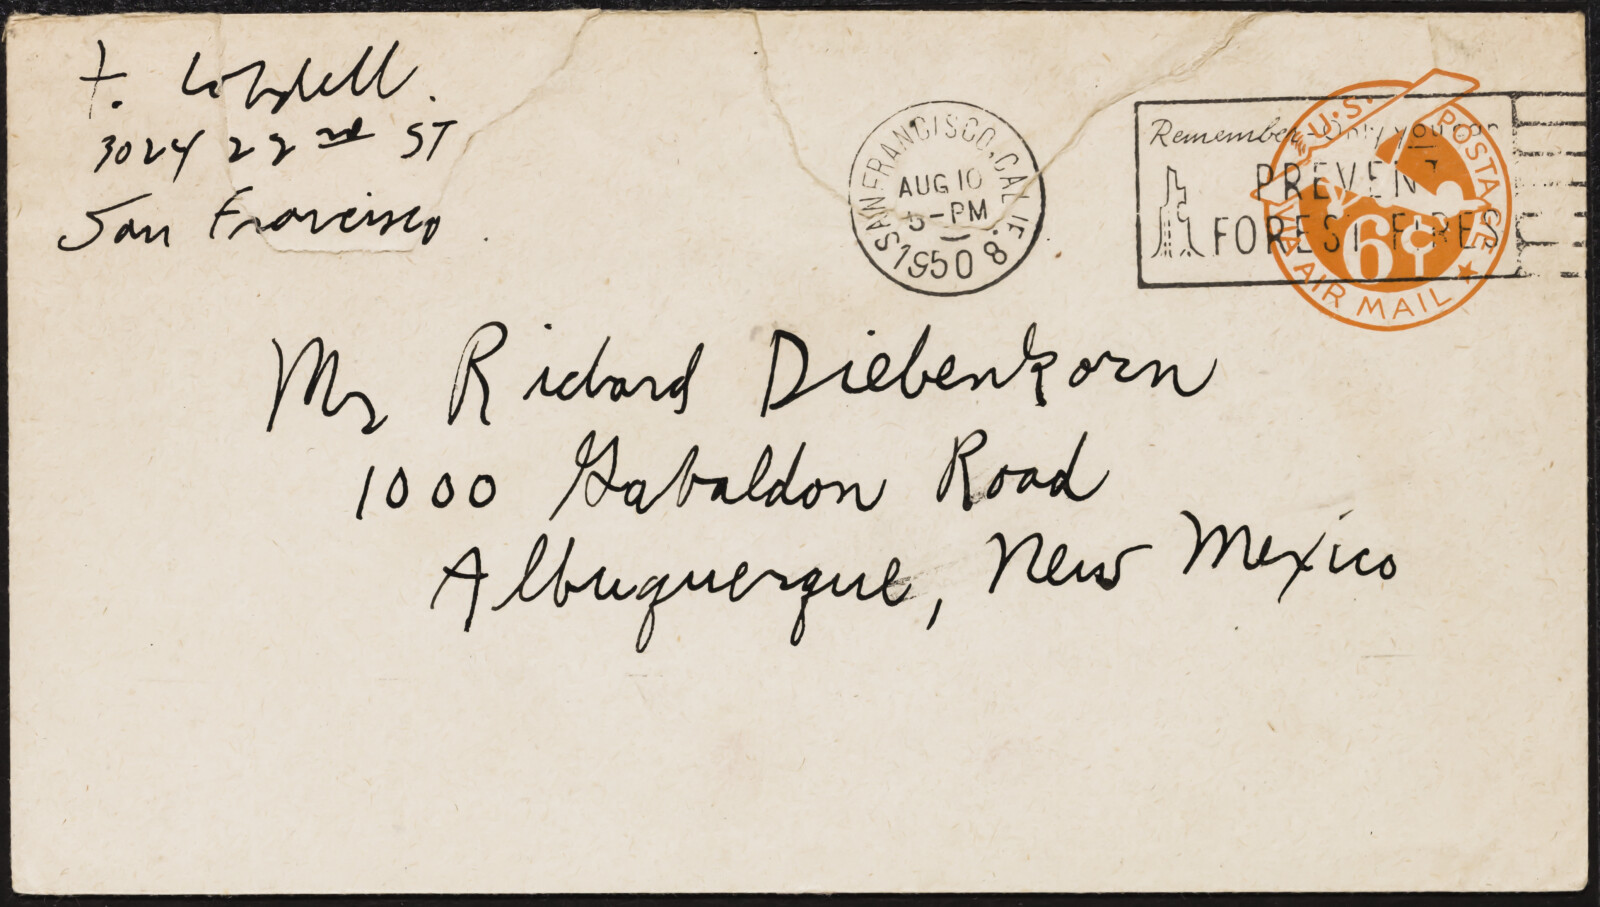 F. Lobdell.
3024 22nd ST
San Francisco.
SAN FRANCISCO, CALIF. 8
AUG 10
5-PM
1950
Remember - Only you can
PREVENT
FOREST FIRES
U.S. POSTAGE
6¢
VIA AIR MAIL
Mr Richard Diebenkorn
1000 Gabaldon Road
Albuquerque, New Mexico